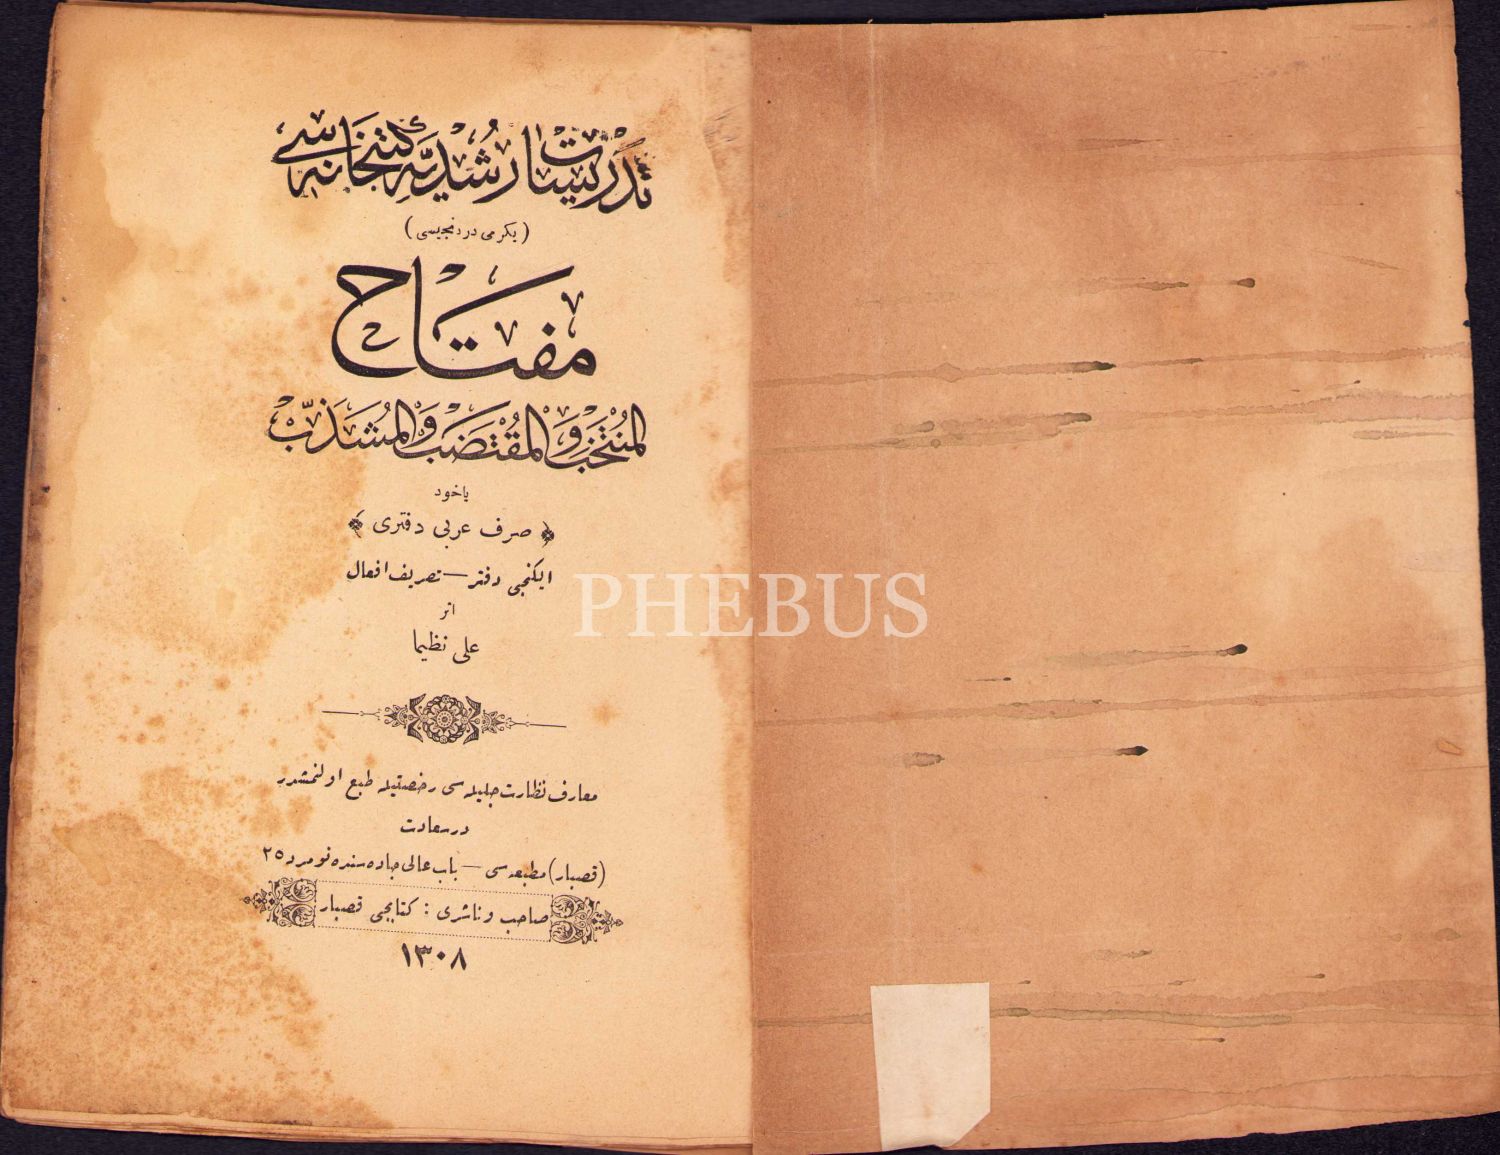 تدريسات رشديه كتبخانه سى
(يكرمى دردنجيسى)
مفتاح
المنتخب والمقتضب والمشذب
ياخود
﴿ صرف عربى دفترى ﴾
ايكنجى دفتر — تصريف افعال
اثر
على نظيما
PHEBUS
معارف نظارت جليله سى رخصتيله طبع اولنمشدر
در سعادت
(قصبار) مطبعه سى — باب عالى جاده سنده نومرو ٢٥
صاحب و ناشرى : كتابجى قصبار
١٣٠٨